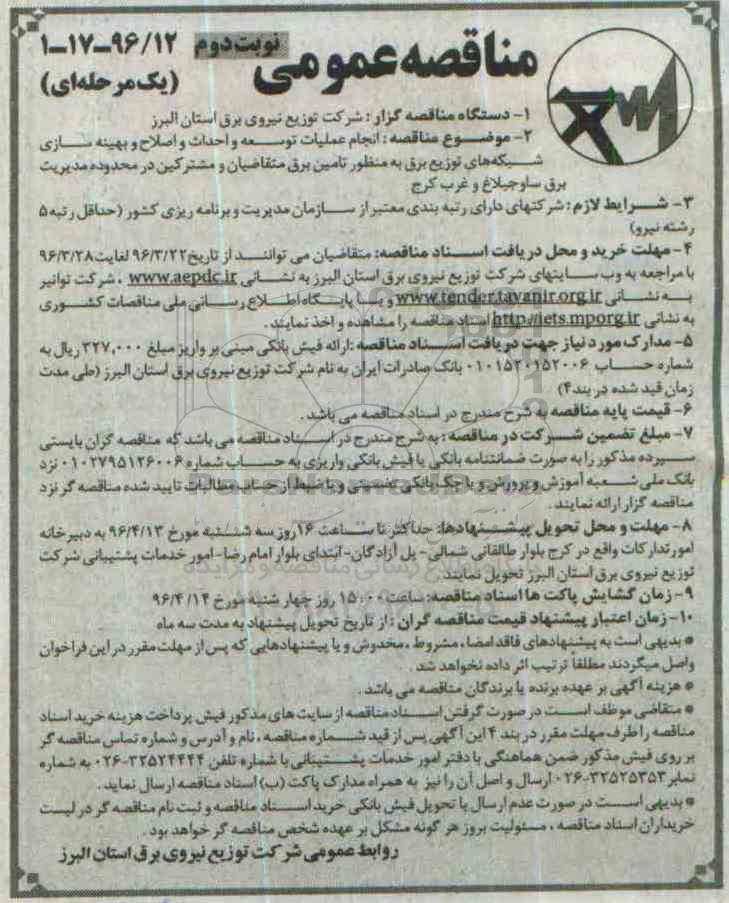 مناقصه عمومی نوبت دوم ۱-۱۷-۹۶/۱۲
(یک مرحله‌ای)
۱- دستگاه مناقصه گزار : شرکت توزیع نیروی برق استان البرز
۲- موضوع مناقصه : انجام عملیات توسعه و احداث و اصلاح و بهینه سازی
شبکه‌های توزیع برق به منظور تامین برق متقاضیان و مشترکین در محدوده مدیریت
برق ساوجبلاغ و غرب کرج
۳- شرایط لازم : شرکتهای دارای رتبه بندی معتبر از سازمان مدیریت و برنامه ریزی کشور (حداقل رتبه ۵
رشته نیرو)
۴- مهلت خرید و محل دریافت اسناد مناقصه: متقاضیان می توانند از تاریخ ۹۶/۳/۲۲ لغایت ۹۶/۳/۲۸
با مراجعه به وب سایتهای شرکت توزیع نیروی برق استان البرز به نشانی www.aepdc.ir ، شرکت توانیر
به نشانی www.tender.tavanir.org.ir و یا پایگاه اطلاع رسانی ملی مناقصات کشوری
به نشانی http://iets.mporg.ir اسناد مناقصه را مشاهده و اخذ نمایند .
۵- مدارک مورد نیاز جهت دریافت اسناد مناقصه :ارائه فیش بانکی مبنی بر واریز مبلغ ۳۲۷,۰۰۰ ریال به
شماره حساب ۰۱۰۱۵۲۰۱۵۲۰۰۶ بانک صادرات ایران به نام شرکت توزیع نیروی برق استان البرز (طی مدت
زمان قید شده در بند ۴)
۶- قیمت پایه مناقصه به شرح مندرج در اسناد مناقصه می باشد .
۷- مبلغ تضمین شرکت در مناقصه : به شرح مندرج در اسناد مناقصه می باشد که مناقصه گران بایستی
سپرده مذکور را به صورت ضمانتنامه بانکی یا فیش بانکی واریزی به حساب شماره ۰۱۰۲۷۹۵۱۲۶۰۰۶ نزد
بانک ملی شعبه آموزش و پرورش و یا چک بانکی تضمینی و یا ضبط از حساب مطالبات تایید شده مناقصه گر نزد
مناقصه گزار ارائه نمایند .
۸- مهلت و محل تحویل پیشنهادها: حداکثر تا ساعت ۱۶ روز سه شنبه مورخ ۹۶/۴/۱۳ به دبیرخانه
امور تدارکات واقع در کرج بلوار طالقانی شمالی- پل آزادگان- ابتدای بلوار امام رضا- امور خدمات پشتیبانی شرکت
توزیع نیروی برق استان البرز تحویل نمایند.
۹- زمان گشایش پاکت ها اسناد مناقصه: ساعت ۱۵:۰۰ روز چهار شنبه مورخ ۹۶/۴/۱۴
۱۰- زمان اعتبار پیشنهاد قیمت مناقصه گران : از تاریخ تحویل پیشنهاد به مدت سه ماه
* بدیهی است به پیشنهادهای فاقد امضا ، مشروط ، مخدوش و یا پیشنهادهایی که پس از مهلت مقرر در این فراخوان
واصل میگردند مطلقا ترتیب اثر داده نخواهد شد .
* هزینه آگهی بر عهده برنده یا برندگان مناقصه می باشد .
* متقاضی موظف است در صورت گرفتن اسناد مناقصه از سایت های مذکور فیش پرداخت هزینه خرید اسناد
مناقصه را ظرف مهلت مقرر در بند ۴ این آگهی پس از قید شماره مناقصه ، نام و آدرس و شماره تماس مناقصه گر
بر روی فیش مذکور ضمن هماهنگی با دفتر امور خدمات پشتیبانی با شماره تلفن ۳۲۵۲۴۴۴۴-۰۲۶ به شماره
نمابر ۳۲۵۲۵۳۵۳-۰۲۶ ارسال و اصل آن را نیز به همراه مدارک پاکت (ب) اسناد مناقصه ارسال نماید .
* بدیهی است در صورت عدم ارسال یا تحویل فیش بانکی خرید اسناد مناقصه و ثبت نام مناقصه گر در لیست
خریداران اسناد مناقصه ، مسئولیت بروز هر گونه مشکل بر عهده شخص مناقصه گر خواهد بود .
روابط عمومی شرکت توزیع نیروی برق استان البرز